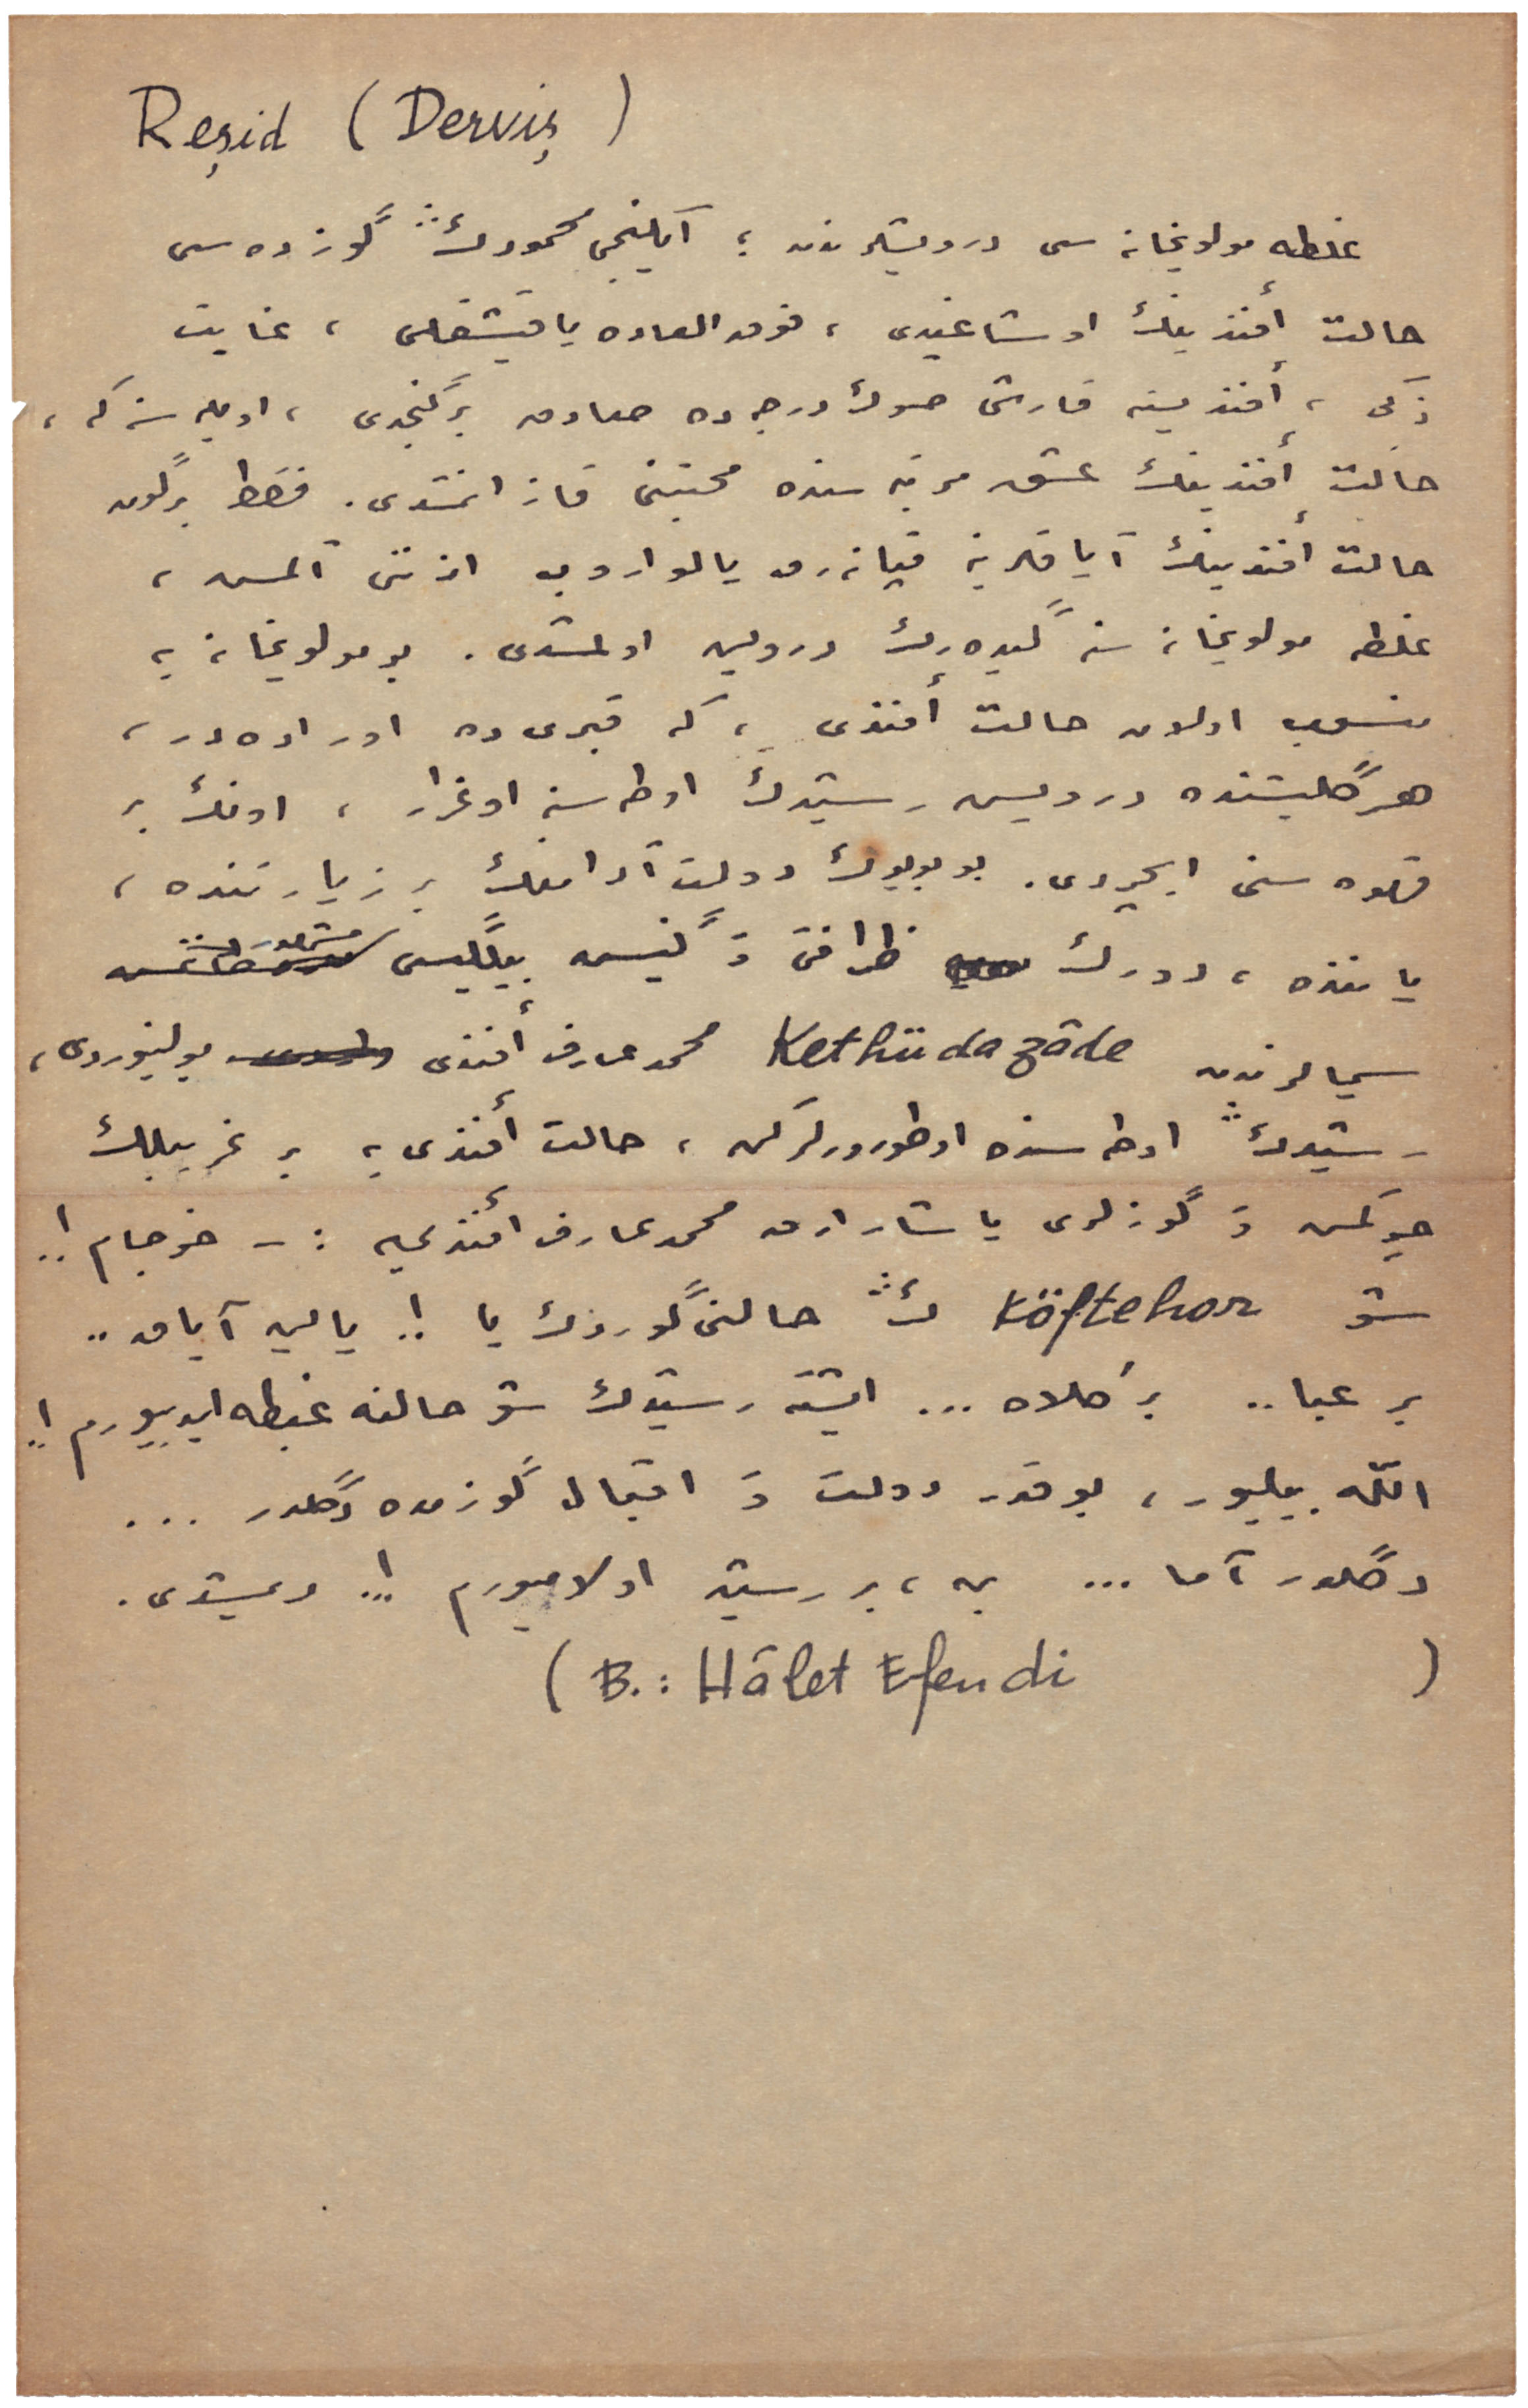 Reşid (Derviş)
غلطه مولويخانه سی درويشلرندن ؛ ايكنجی محمودڭ گوزده سی
حالت أفندينڭ اوشاغيدی ، فوق العاده ياقيشقلی ، غايت
ذكی ، أفنديسنه قارشی صوڭ درجه ده صادق بر گنجدی ، اويله سنه كه ،
حالت أفندينڭ عشق مرتبه سنده محبتنی قازانمشدی . فقط بر گون
حالت أفندينڭ آياقلرينه قپانه رق يالواروب اذننی آلمش ،
غلطه مولويخانه سنه گيده رك درويش اولمشدی . بو مولويخانه يه
منسوب اولان حالت أفندی ، كه قبری ده اوراده در ،
هر گليشنده درويش رشيدڭ اوطه سنه اوغرار ، اونڭ بر
قهوه سنی ايچردی . بو بويوك دولت آدامنڭ بر زيارتنده ،
ياننده ، دورڭ ظرافتی وَ گنيش بيلگيسی مشهور
سيمالرندن Kethüdazâde محمد عارف أفندی بولنيوردی ،
رشيدڭ اوطه سنده اوطورورلركن ، حالت أفندی يه بر غريبلك
چوكمش وَ گوزلری ياشاراراق محمد عارف أفندی يه : – خوجام !..
شو Köftehor ڭ حالنی گوردڭ يا !.. يالين آياق ..
بر عبا .. بر كلاه ... ايشته رشيدڭ شو حالنه غبطه ايدييورم !..
اللّٰه بيلييور ، بو قدر دولت وَ اقبال گوزمده دگلدر ...
دگلدر آما ... بن ، بر رشيد اولاميورم !... ديمشدی .
(B.: Hâlet Efendi )